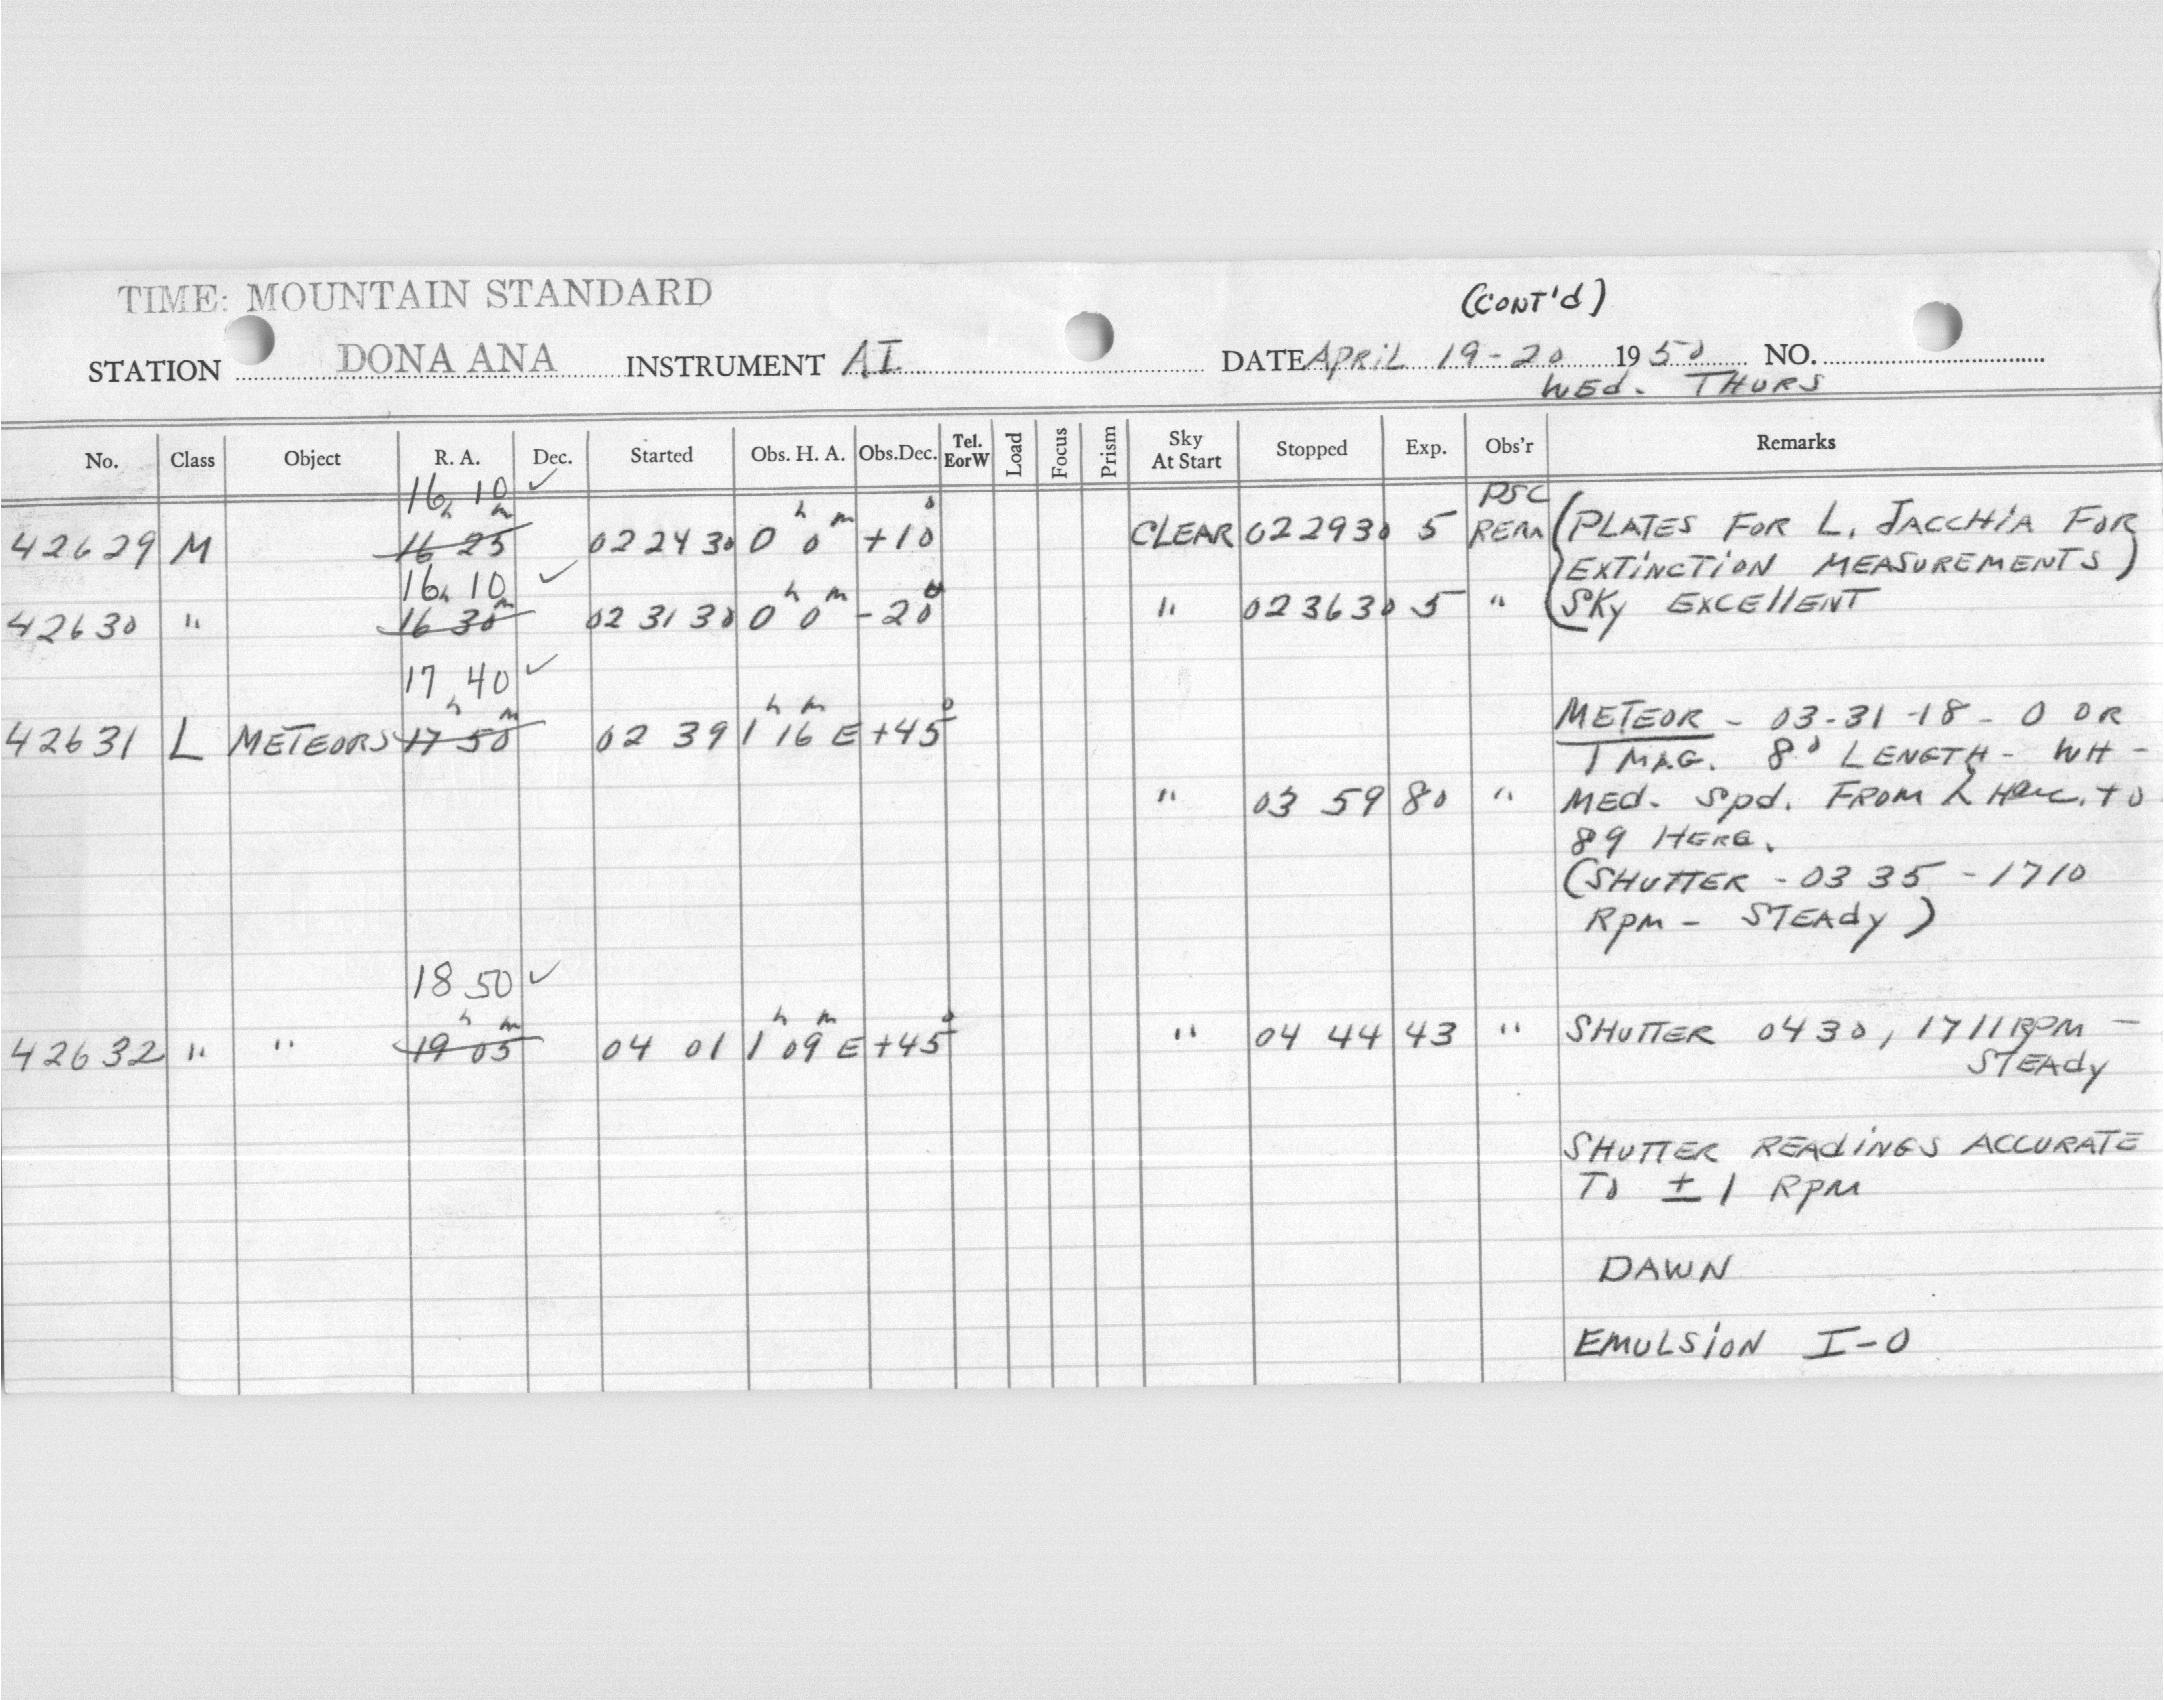 TIME: MOUNTAIN STANDARD
(CONT'd)
STATION DONA ANA INSTRUMENT AI DATE APRIL 19-20 1950 NO.
WEd. THURS
No. Class Object R. A. Dec. Started Obs. H. A. Obs.Dec. Tel. EorW Load Focus Prism Sky At Start Stopped Exp. Obs'r Remarks
16 10 ✓ PSC
42629 M 16h 25m 02 24 30 0h 0m +10° CLEAR 02 29 30 5 (PLATES FOR L. JACCHIA FOR
EXTINCTION MEASUREMENTS)
16 10 ✓
42630 " 16h 30m 02 31 30 0h 0m -20° " 02 36 30 5 " SKY EXCELLENT
17 40 ✓
42631 L METEORS 17h 50m 02 39 1h 16m E +45° METEOR - 03-31-18 - 0 OR
1 MAG. 8° LENGTH - WH -
" 03 59 80 " MEd. Spd. FROM λ Herc. to
89 HERC.
(SHUTTER - 03 35 - 1710
RPM - STEAdy)
18 50 ✓
42632 " " 19h 05m 04 01 1h 09m E +45° " 04 44 43 " SHUTTER 0430, 1711 RPM -
STEAdy
SHUTTER READINGS ACCURATE
TO ± 1 RPM
DAWN
EMULSION I-0